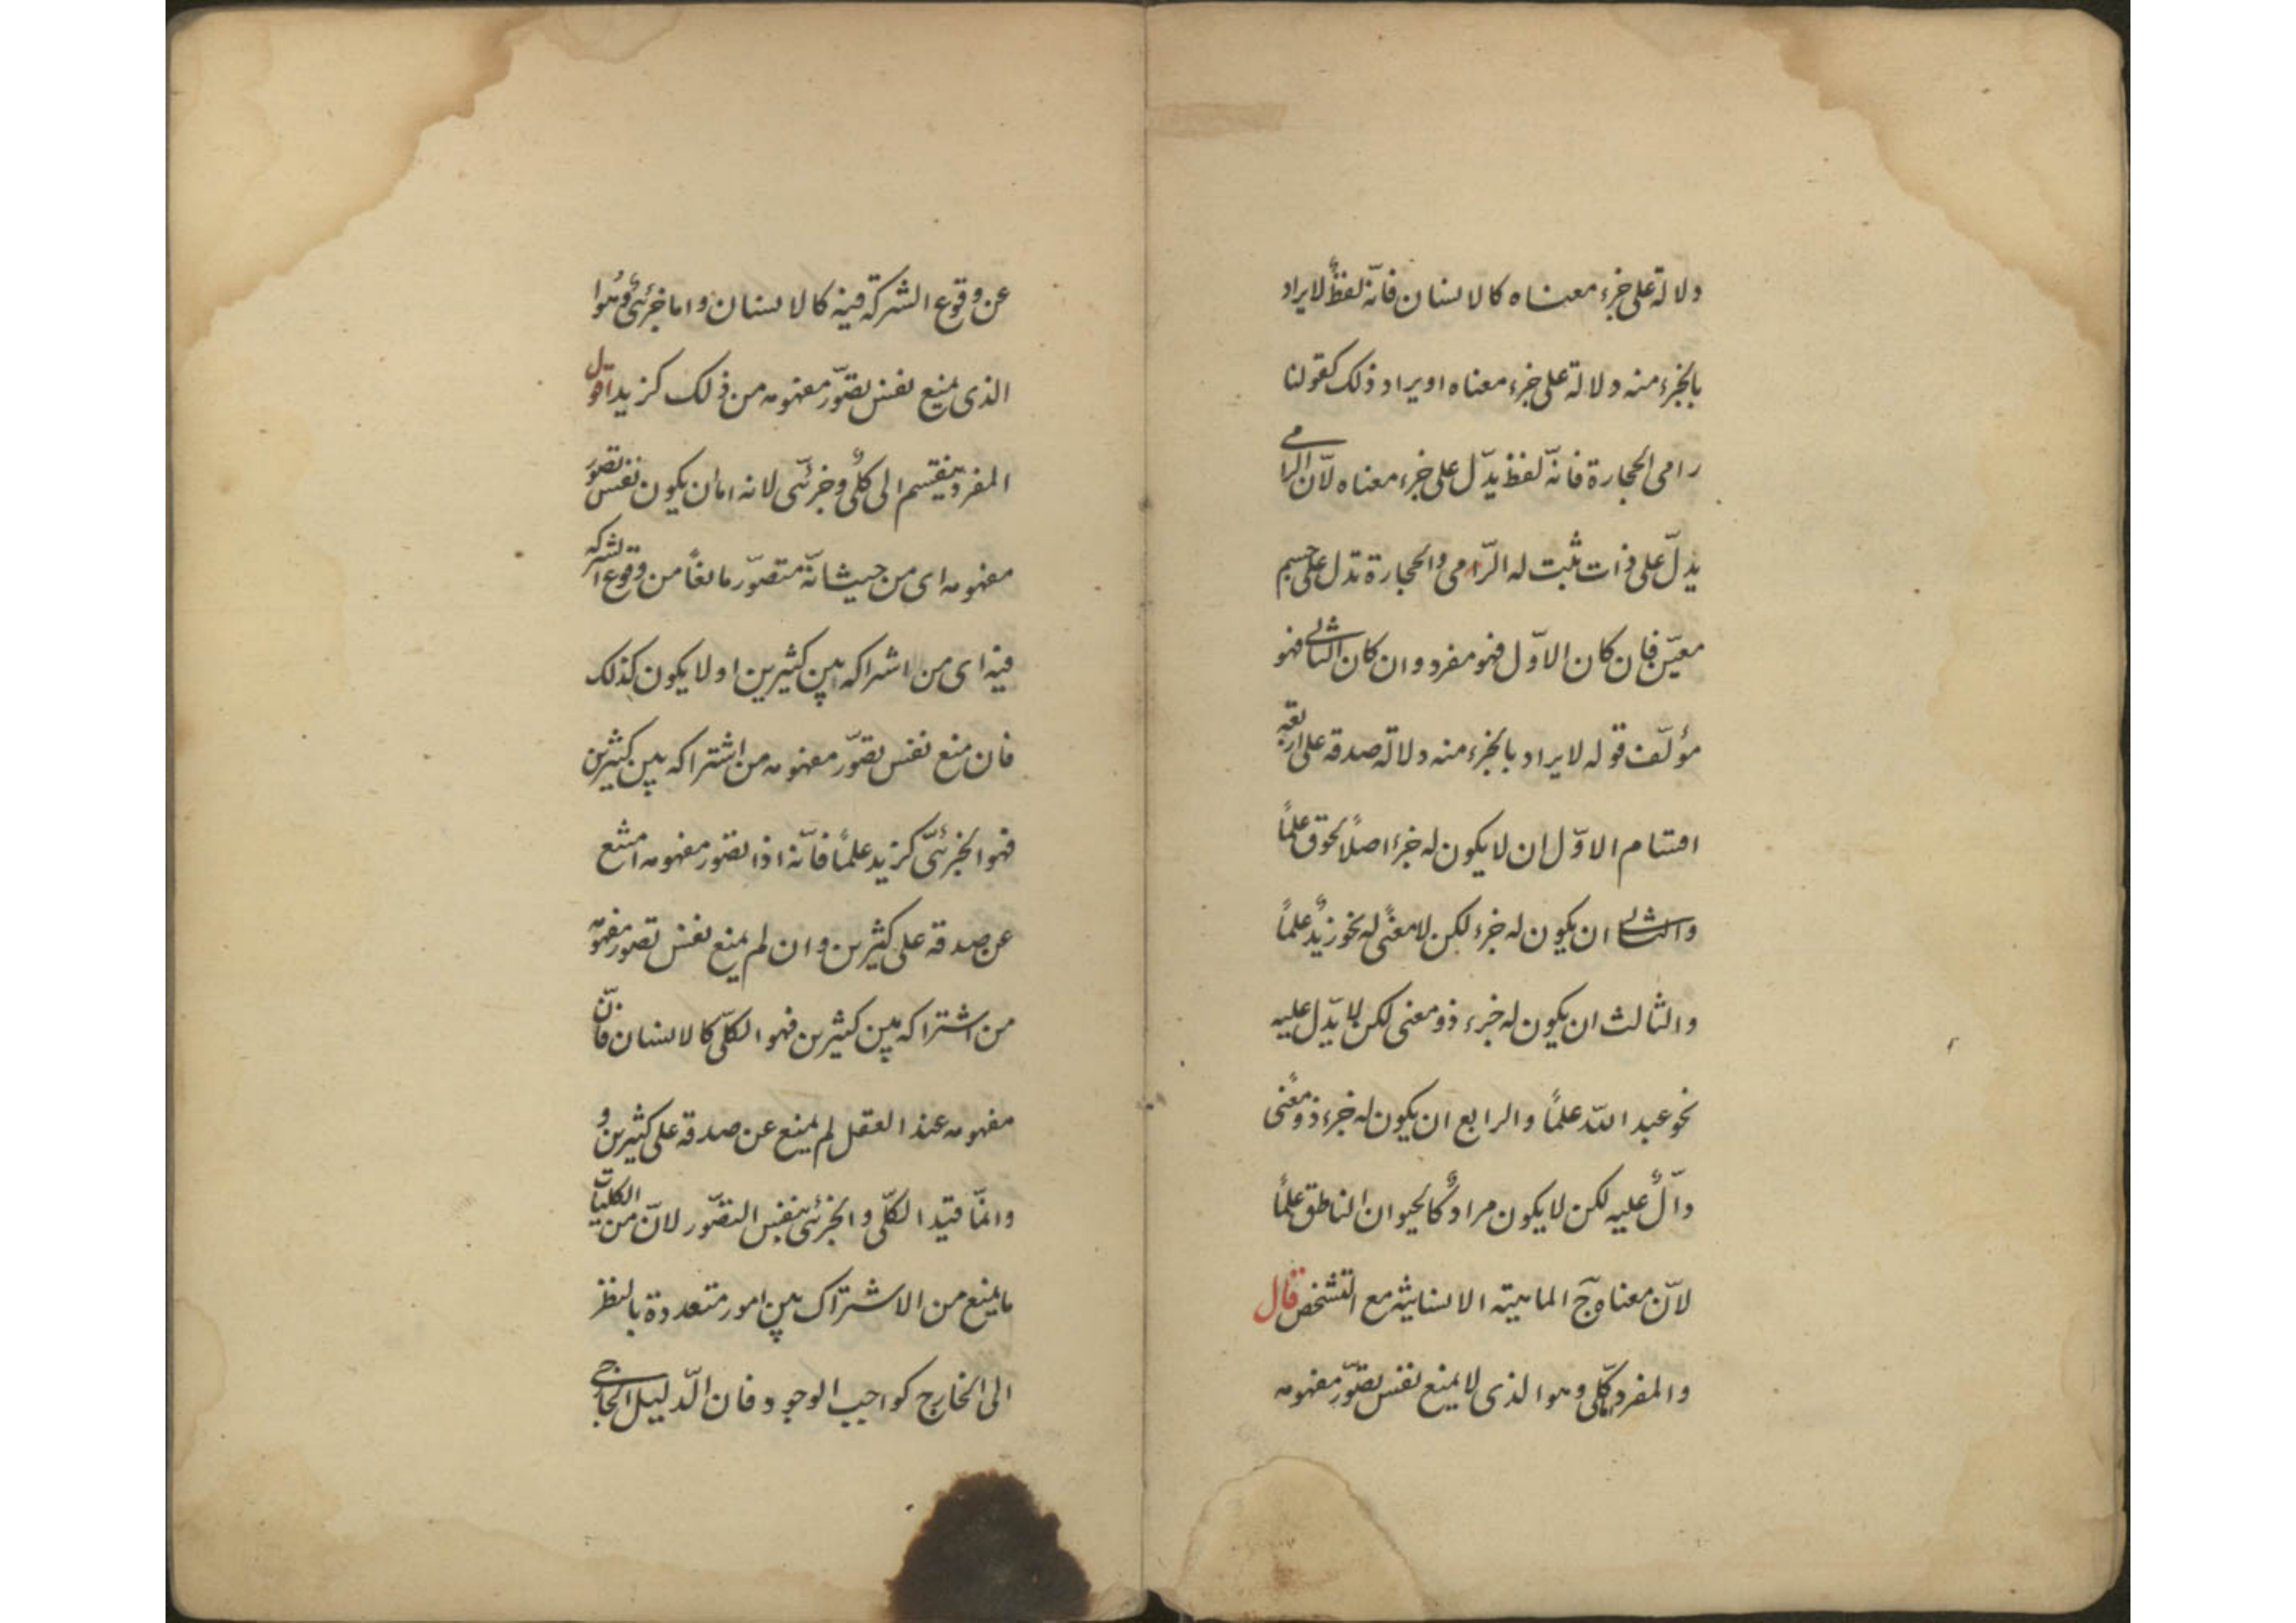 دلالة على جزء معناه كالانسان فانّه لفظٌ لا يراد
بالجزء منه دلالة على جزء معناه او يراد ذلك كقولنا
رامى الحجارة فانّه لفظ يدّل على جزء معناه لانّ الرامى
يدلّ على ذات ثبت له الرّمى والحجارة تدل على جسم
معيّن فان كان الاوّل فهو مفرد وان كان الثانى فهو
مؤلّف قوله لا يراد بالجزء منه دلالة صدقه على اربعة
اقسام الاوّل ان لا يكون له جزء اصلًا نحو ق علمًا
والثانى ان يكون له جزء لكن لا معنًى له نحو زيدٌ علمًا
والثالث ان يكون له جزء ذو معنى لكن لا يدّل عليه
نحو عبد اللّه علمًا والرابع ان يكون له جزء ذو معنًى
دآلٌّ عليه لكن لا يكون مرادٌ كالحيوان الناطق علمًا
لانّ معناه ح الماهيته الانسانيّة مع التشخص قال
والمفرد امّا كلّى وهو الذى لا يمنع نفس تصوّر مفهومه
عن وقوع الشركة فيه كالانسان واما جزئىٌ وهوا
الذى يمنع نفس تصوّر مفهومه من ذلك كزيد اقول
المفرد ينقسم الى كلّىٌ وجزئىّ لانه اما ان يكون نفس تصور
مفهومه اى من حيث انّه متصوّر مانعًا من وقوع الشركه
فيه اى من اشراكه بين كثيرين او لا يكون كذلك
فان منع نفس تصوّر مفهومه من اشتراكه بين كثيرين
فهو الجزئىّ كزيد علمًا فانّه اذا تصور مفهومه امتنع
عن صدقه على كثيرين وان لم يمنع نفس تصور مفهومه
من اشتراكه بين كثيرين فهو الكلّى كالانسان فانّ
مفهومه عند العقل لم يمنع عن صدقه على كثيرين و
وانّما قيّد الكلّى والجزئى بنفس التصّور لانّ من الكليات
ما يمنع من الاشتراك بين امور متعددة بالنظر
الى الخارج كواجب الوجود فان الدّليل الخارجى